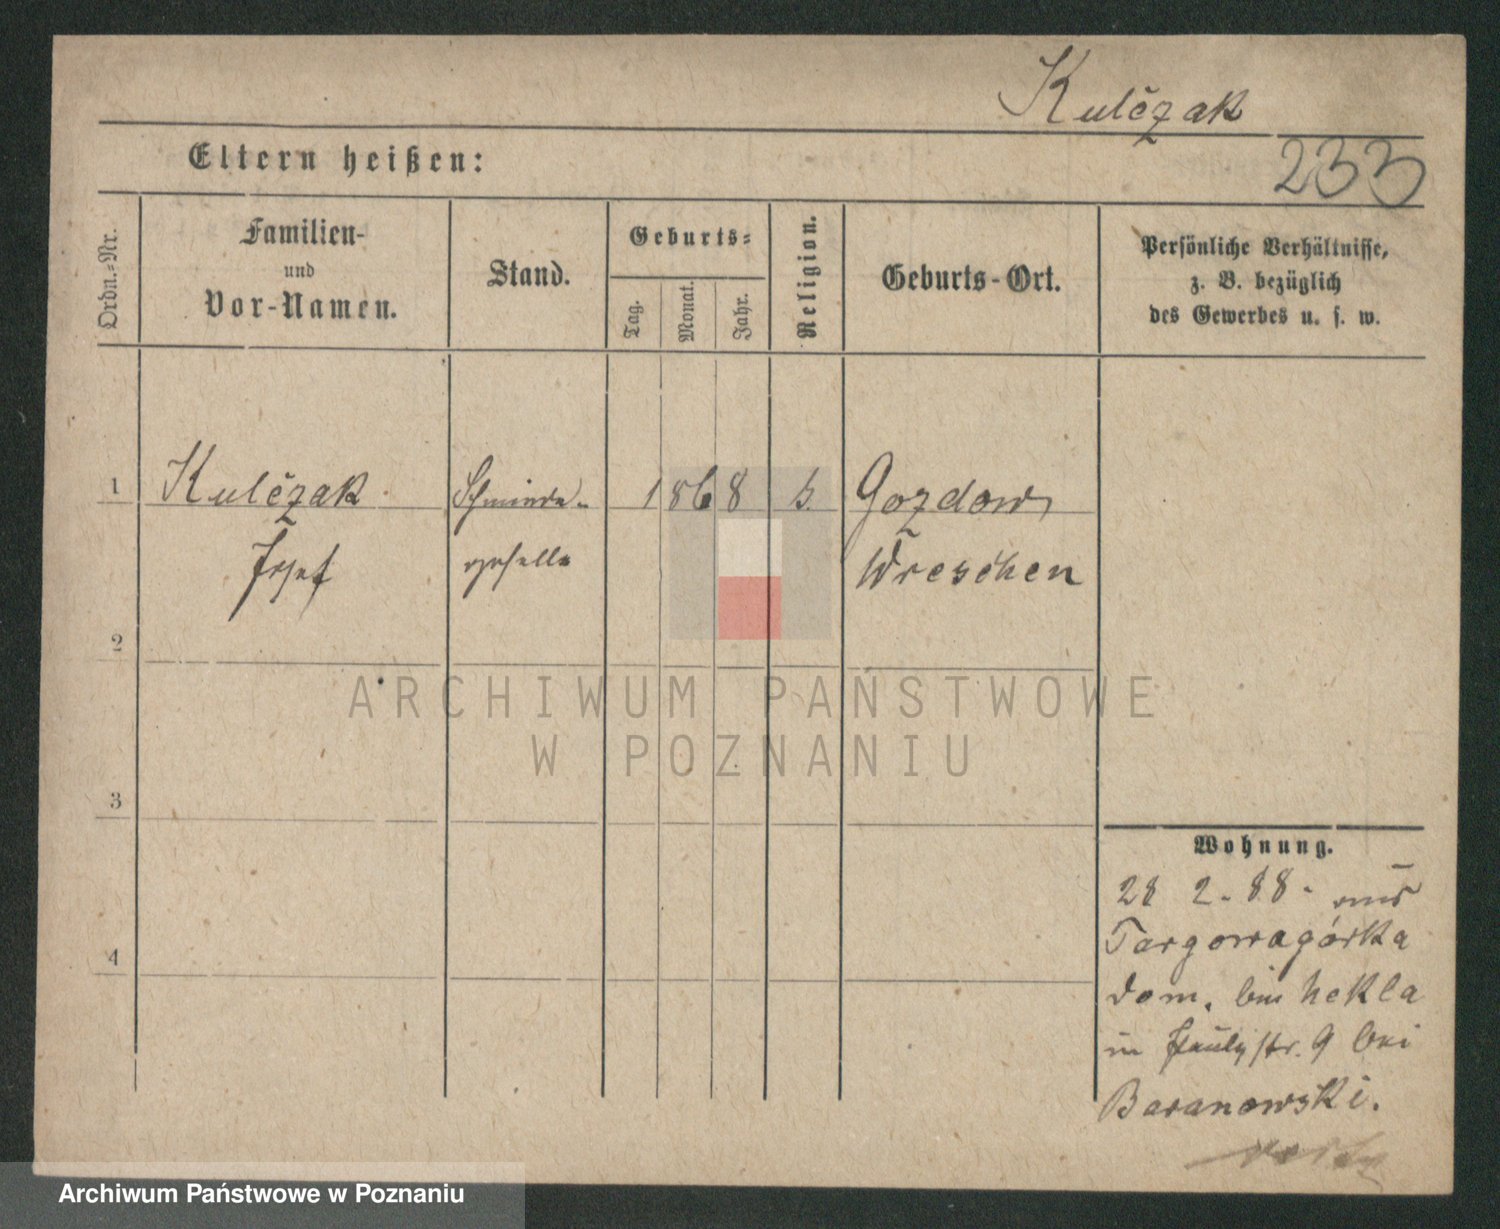 Kulczak
233
Eltern heißen:
Ordn.-Nr.
Familien-
und
Vor-Namen.
Stand.
Geburts-
Tag.
Monat.
Jahr.
Religion.
Geburts-Ort.
Persönliche Verhältnisse,
z. B. bezüglich
des Gewerbes u. s. w.
1
Kulczak
Josef
Schmiede-
geselle
1868
k.
Gozdowo
Wreschen
2
3
4
ARCHIWUM PAŃSTWOWE
W POZNANIU
Wohnung.
28 2. 88. aus
Targowagórka
dom. bei Nekla
in str. 9 bei
Baranowski.
Archiwum Państwowe w Poznaniu